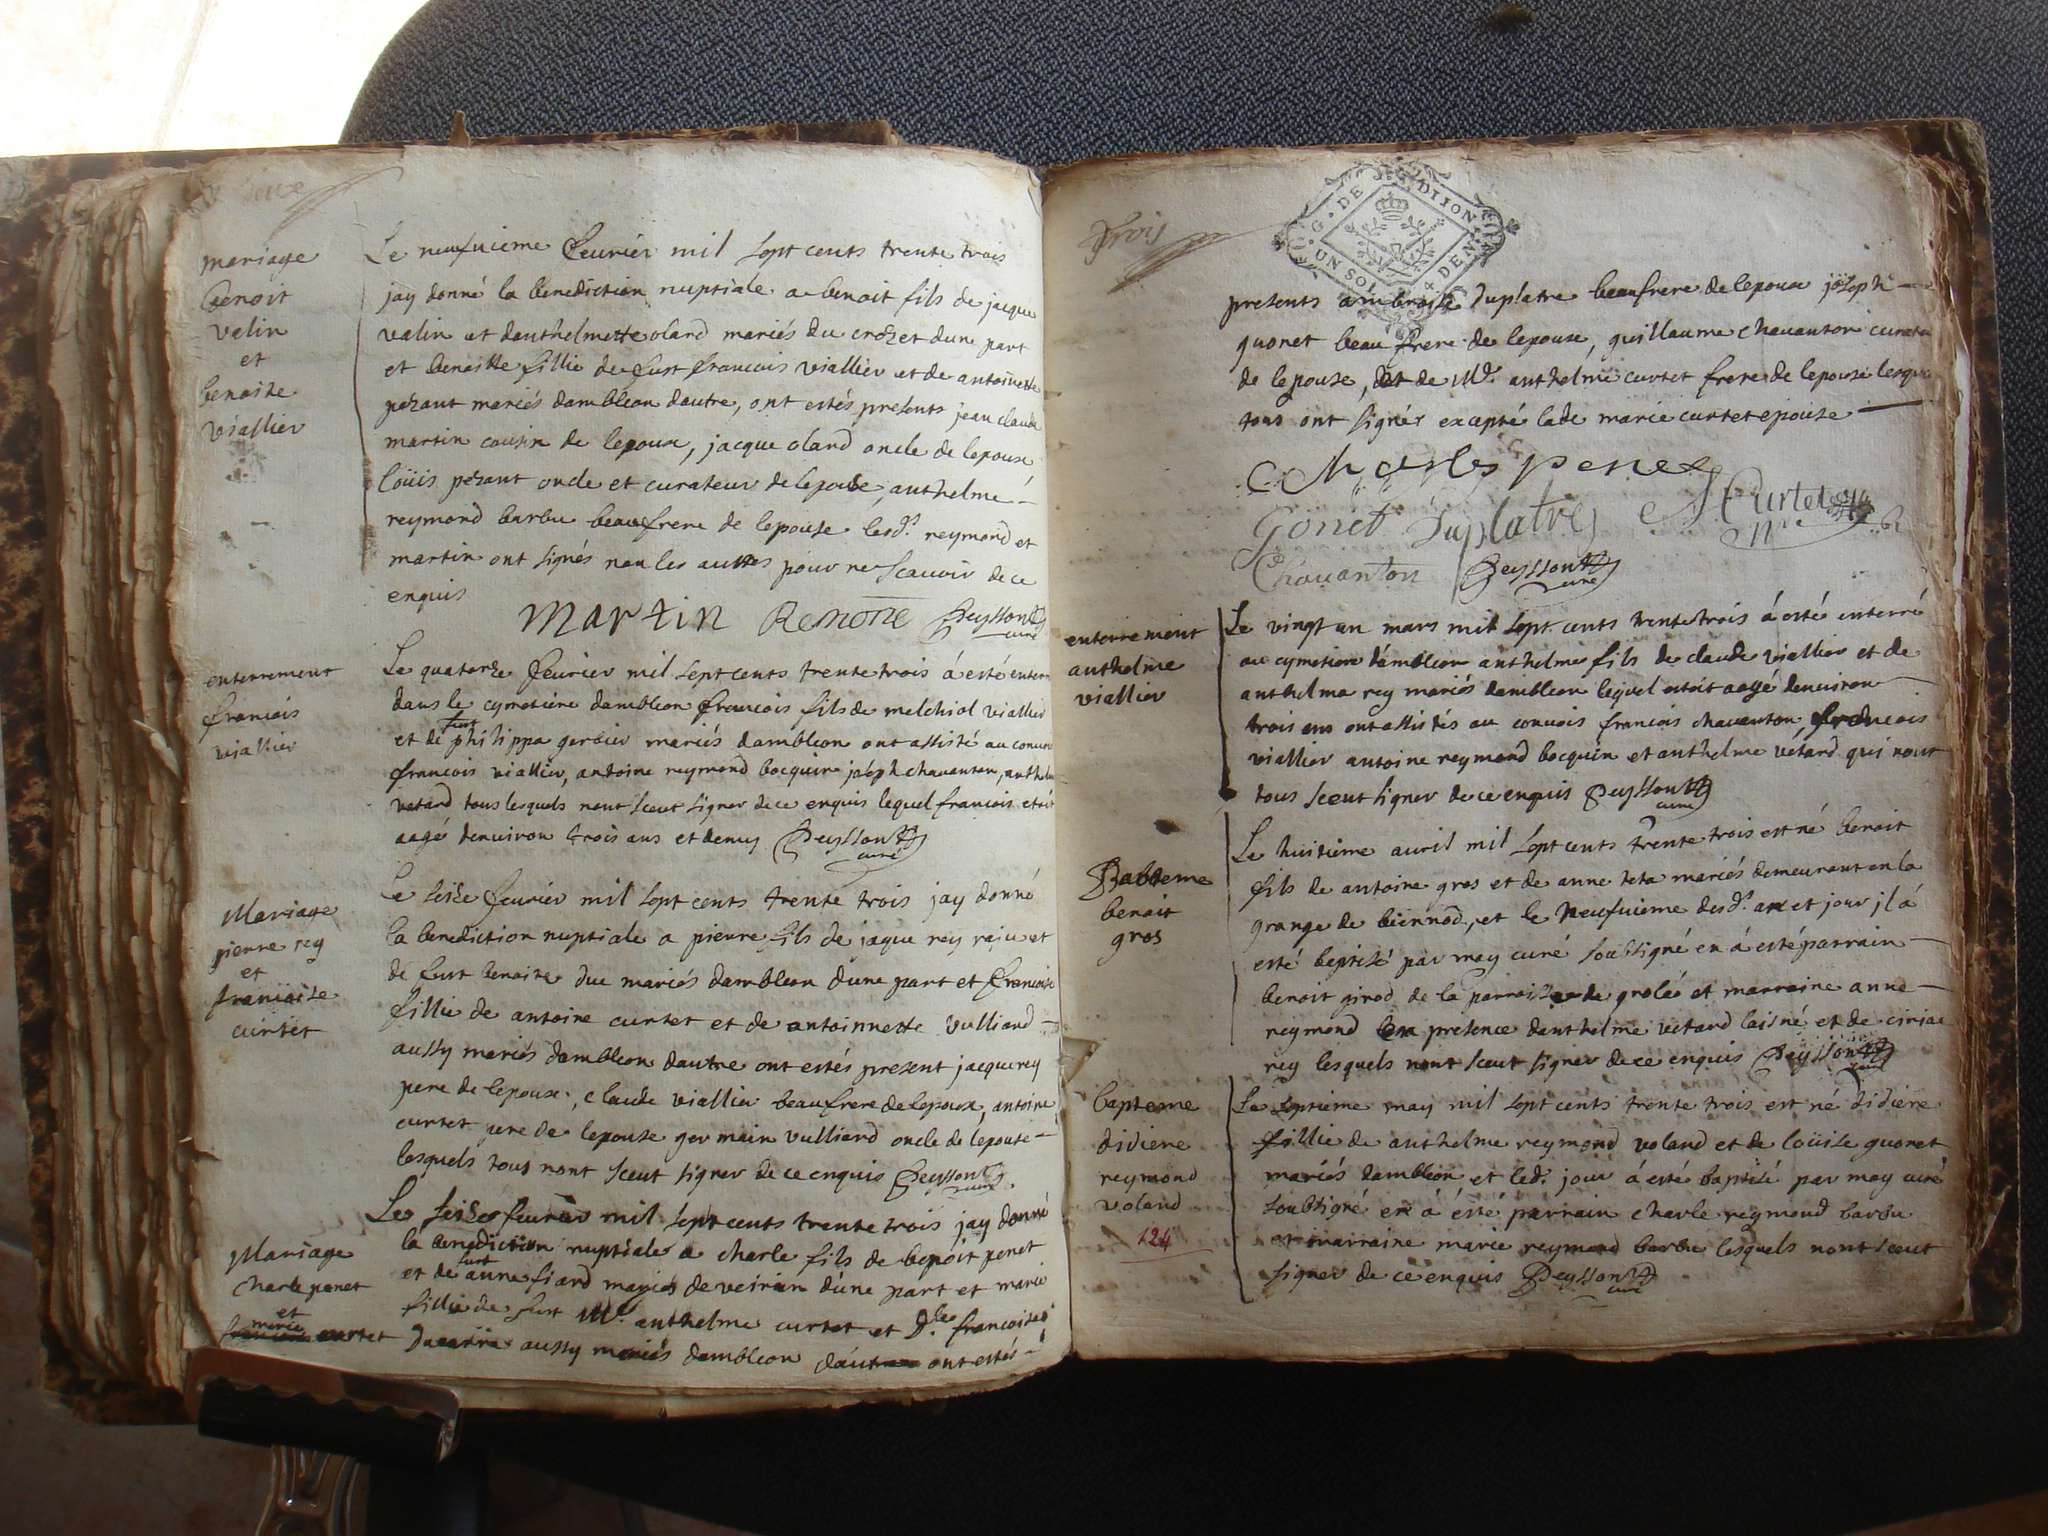 mariage
benoit
valin
et
benoite
viallier
Le neufuieme feurier mil sept cents trente trois
jay donné la benediction nuptiale a benoit fils de jacque
valin et danthelmette olard mariés du crozet dune part
et benoitte fillie de fust francois viallier et de antoinette
pézant mariés dambleon dautre, ont estés presents jean claude
martin cousin de lepoux, jacque olard oncle de lepoux
loüis pézant oncle et curateur de lepouse, anthelme
reymond barbu beaufrere de lepouse lesd.s reymond et
martin ont signés non les autres pour ne scauoir de ce
enquis
martin Remone Peysson
curé
enterrement
francois
viallier
Le quatorze feurier mil sept cents trente trois á esté enterré
dans le cymetiere dambleon francois fils de melchiol viallier
et de fust philippa gerbier mariés dambleon ont assisté au conuoi
francois viallier, antoine reymond bocquin joseph chauanton, anthelme
vetard tous lesquels nont sceut signer de ce enquis lequel francois etoit
aagé denuiron trois ans et demy Peysson
curé
Mariage
pierre rey
et
francoise
curtet
Le seize feurier mil sept cents trente trois jay donné
la benediction nuptiale a pierre fils de jaque rey et
de fust benoite duc mariés dambleon dune part et francoise
fillie de antoine curtet et de antoinnette vulliard
aussy mariés dambleon dautre ont estés present jacque rey
pere de lepoux, claude viallier beaufrere de lepoux, antoine
curtet pere de lepouse germain vulliard oncle de lepouse
lesquels tous nont sceut signer de ce enquis Peysson
curé
Mariage
charle penet
et
marie
curtet
Le seize feurier mil sept cents trente trois jay donné
la benediction nuptiale a charle fils de benoit penet
et de fust anne fiard mariés de veirien dune part et marie
fillie de fust M.e anthelme curtet et D.lle francoise
aussy mariés dambleon dautre ont estés
trois
G. DE DIION
UN SOL 4 DEN
presents ambroise duplatre beaufrere de lepoux joseph
guonet beau frere de lepoux, guillaume chauanton curateur
de lepouse, et de M.e anthelme curtet frere de lepouse lesquels
tous ont signés excepté lade marie curtet epouse
Charles penet
Gonet Duplatre Curtet
Chauanton Peysson
curé
enterrement
anthelme
viallier
Le vingt un mars mil sept cents trente trois á esté enterré
au cymetiere dámbleon anthelme fils de claude viallier et de
anthelma rey mariés dambleon lequel estoit aagé denuiron
trois ans ont assistés au conuois francois chauanton francois
viallier antoine reymond bocquin et anthelme vétard qui nont
tous sceut signer de ce enquis Peysson
curé
Babteme
benoit
gros
Le huitieme auril mil sept cents trente trois est né benoit
fils de antoine gros et de anne teta mariés demeurant en la
grange de biennod, et le neufuieme desd.s an et jour jl á
esté baptisé par moy curé soubsigné en á esté parrain
benoit girod de la parroisse de groleé et marraine anne
reymond en presence danthelme vetard laisné et de ciriac
rey lesquels nont sceut signer de ce enquis Peysson
curé
bapteme
didiere
reymond
voland
124
Le septieme may mil sept cents trente trois est né didiere
fillie de anthelme reymond voland et de loüise guonet
mariés dambleon et led. jour á esté baptisé par moy curé
soubsigné en á esté parrain charle reymond barbu
et marraine marie reymond barbu lesquels nont sceut
signer de ce enquis Peysson
curé